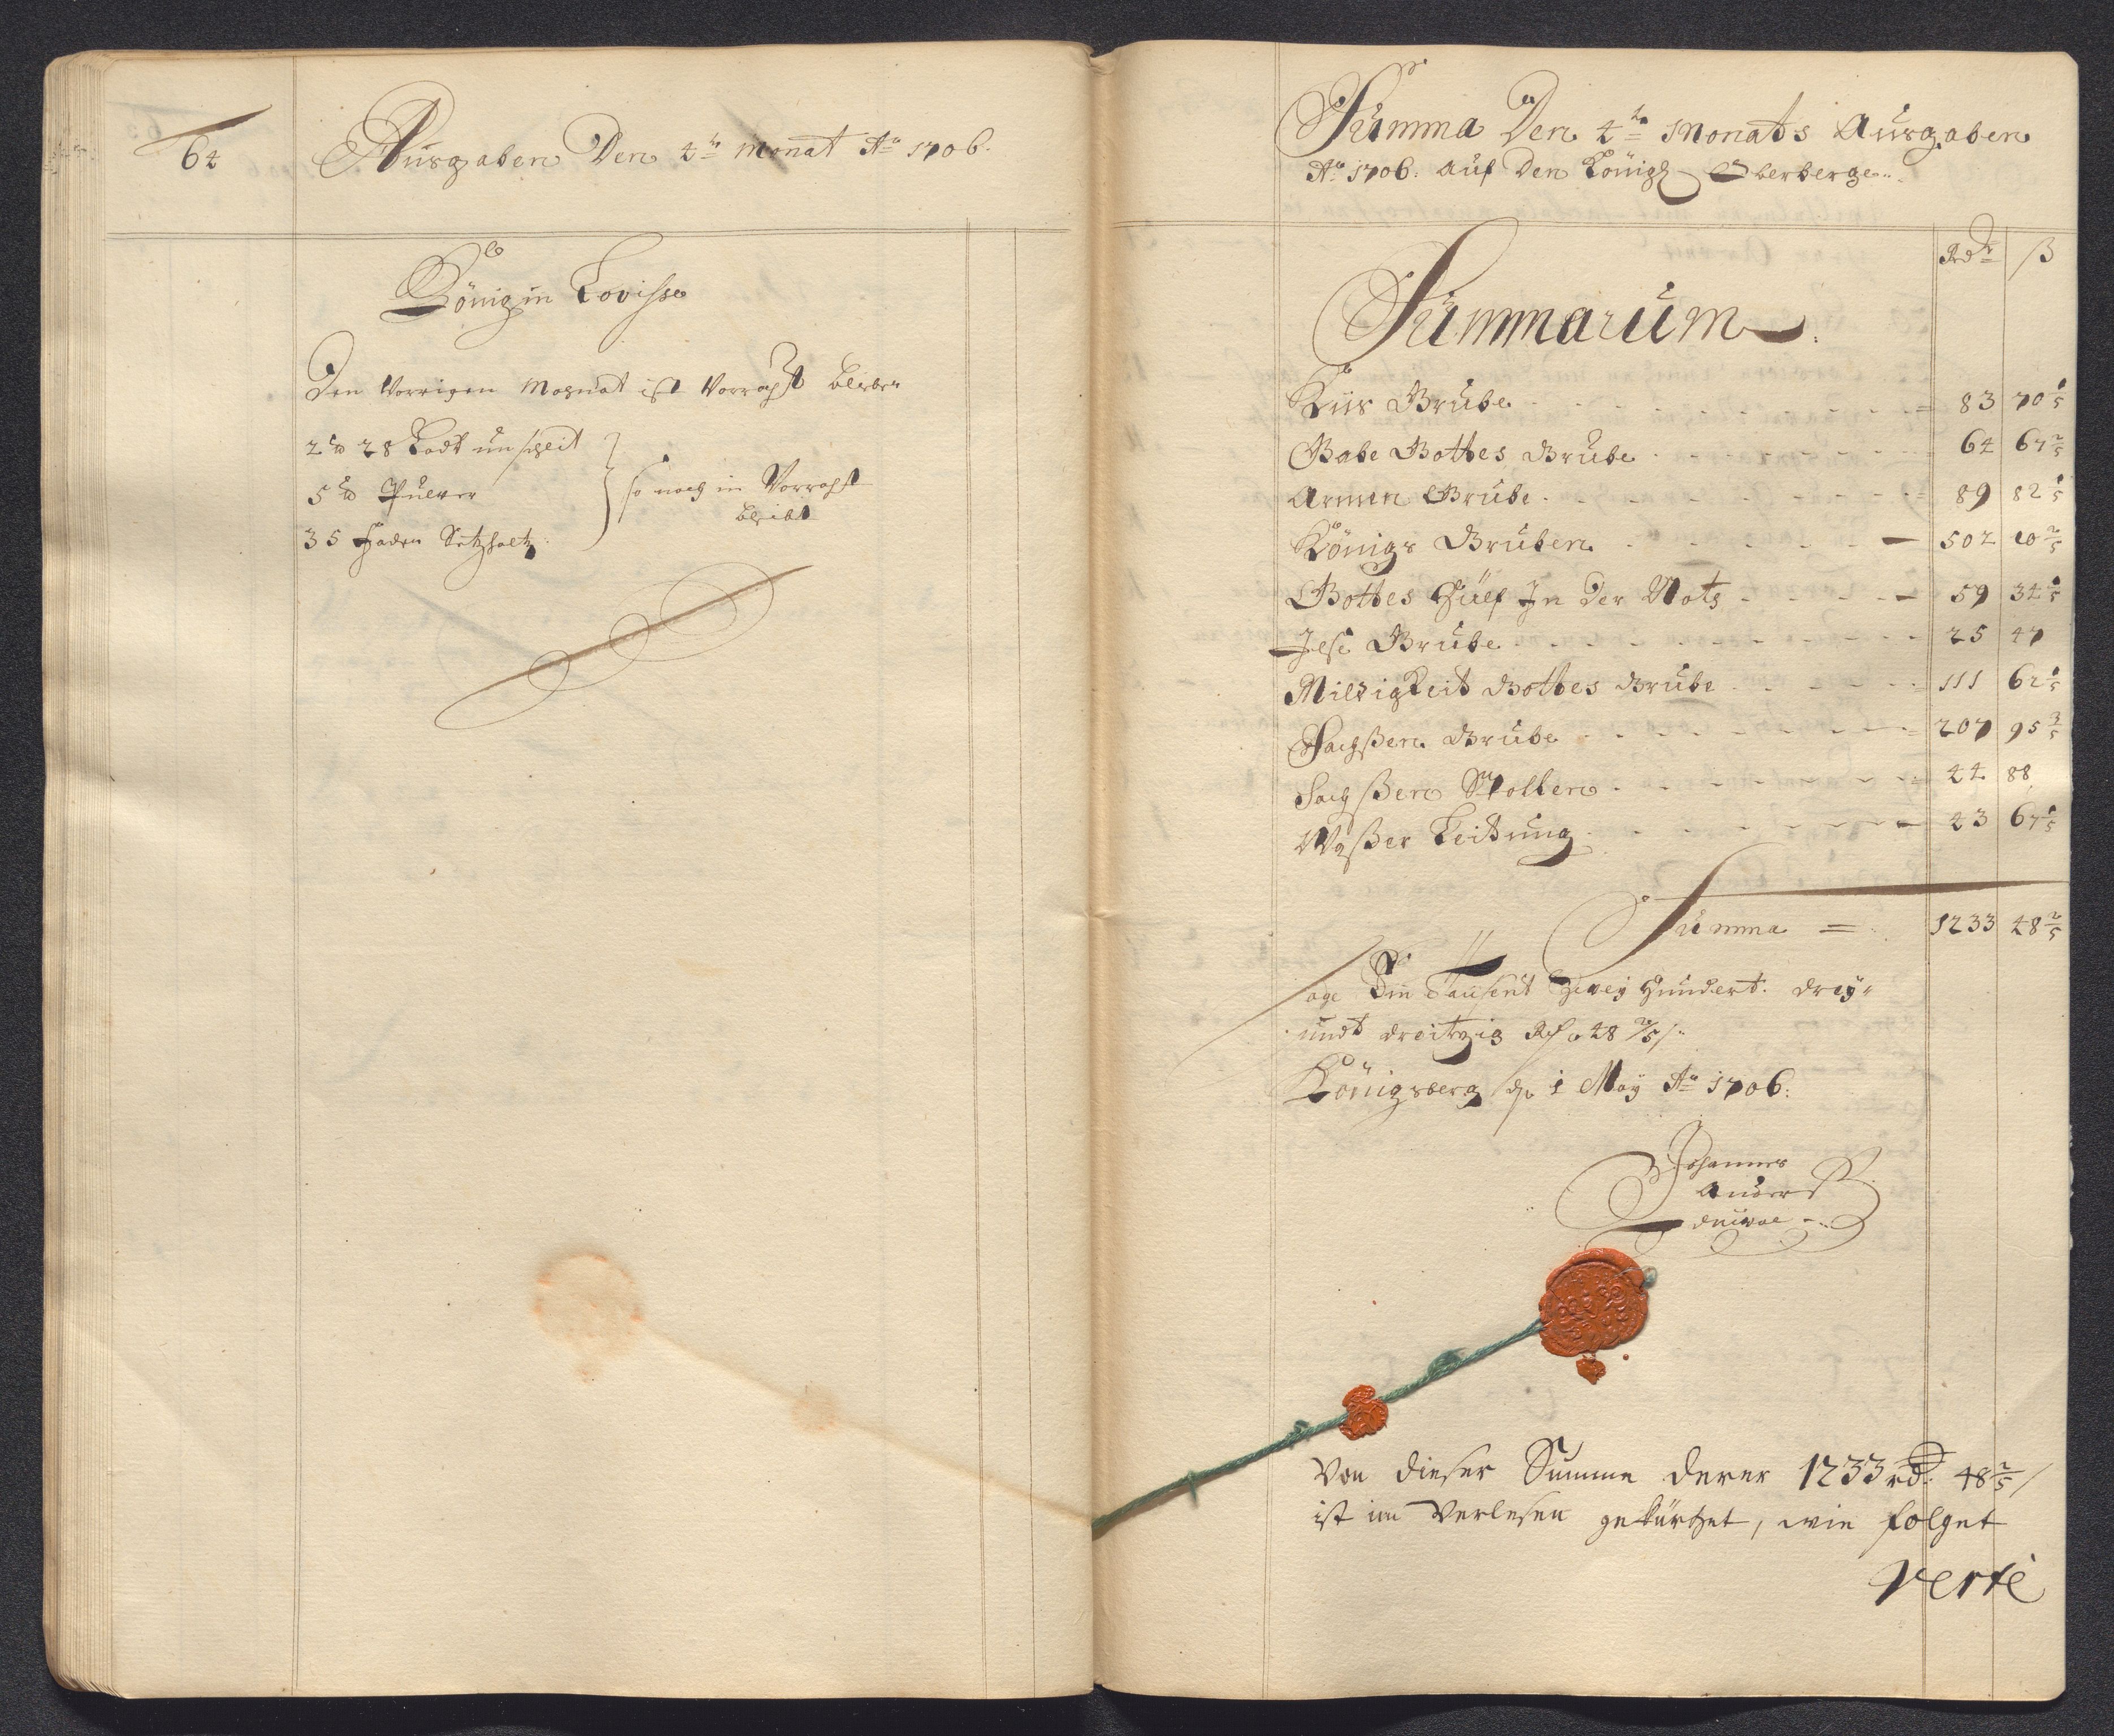 64
Ausgaben Den 4te Monat Ao 1706.
Königin Lovisse
Den Vorrigen Mognat ist Vorraht blieben
2 ℔ 28 Lodt unschlit
5 ℔ Pulver
35 Faden Setzholtz
so noch in Vorraht
bleibt
Summa Den 4te Monats Ausgaben
Ao 1706. auf Den Königl Oberberge
Rdr ß
Summarum
Kiis Grube 83 70 1/5
Gabe Gottes Grube 64 67 2/5
Armen Grube 89 82 1/5
Königs Gruben 502 10 2/5
Gottes Hülf In der Noth 59 34 1/5
Jese Grube 25 47
Mildigkeit Gottes Grube 111 62 1/5
Sachßen Grube 207 95 3/5
Sachßen Stollen 44 88
Waßer Leitung 43 67 1/5
Summa = 1233 48 2/5
Sage Ein Tausent Zwey Hundert drey
undt dreitzig Rd 48 2/5 ß
Königsberg d 1 May Ao 1706.
Johannes
Anders
Von dieser Summe derer 1233 rd. 48 2/5 ß
ist im Verlesen gekürtzet, wie folget
Verte